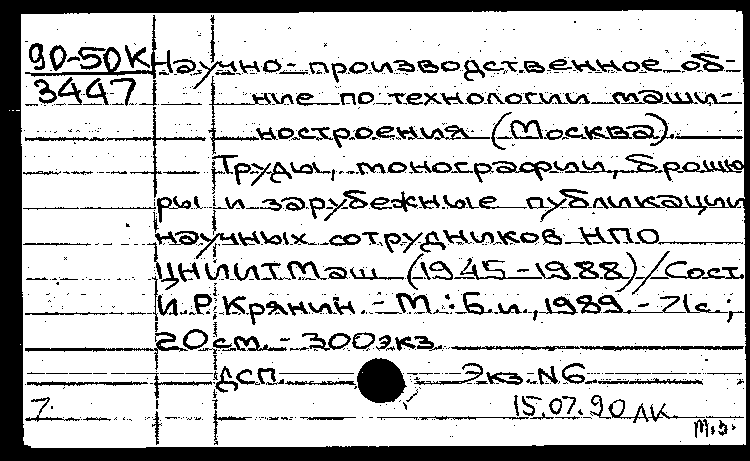 90-50К Научно-производственное об-
3447 ние по технологии маши-
ностроения (Москва).
Труды, монографии, брошю
ры и зарубежные публикации
научных сотрудников НПО
ЦНИИТМаш (1945-1988)/Сост.
И.Р. Крянин. - М.: Б.и., 1989. - 71с.;
20см. - 300экз.
ДСП. Экз. N6
7. 15.07.90 ЛК.
м.э.